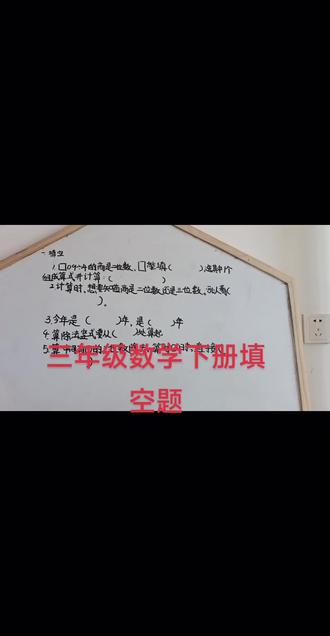 一填空
1.□04÷4的商是二位数,□里填( ),选其中1个
组成算式并计算:( )
2.计算时,想要知道商是二位数还是三位数,可以看(
)。
3.今年是( )年,是( )年
4.算除法竖式要从( )处算起
5.算
三年级数学下册填
空题